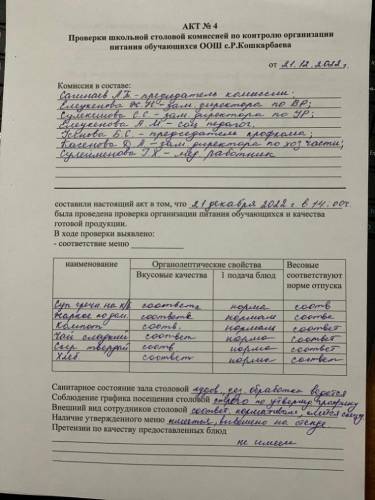 АКТ № 4
Проверки школьной столовой комиссией по контролю организации
питания обучающихся ООШ с.Р.Кошкарбаева
от 21.12.2022г.
Комиссия в составе:
Сагинаев А.Б - председатель комиссии
Елеукенова Ж.К - зам. директора по ВР;
Сулекешова С.С. - зам. директора по УР;
Елеукенова А.М - соц педагог;
Б.С. - председатель профкома;
Касенова Д.А. - зам. директора по хоз части;
Сулейменова Г.К - мед. работник
составили настоящий акт в том, что 21 декабря 2022 г. в 14.00ч.
была проведена проверка организации питания обучающихся и качества
готовой продукции.
В ходе проверки выявлено:
- соответствие меню
наименование Органолептические свойства Весовые соответствуют норме отпуска
Вкусовые качества 1 подача блюд
Суп гречн на к/б соответс норма соотв
Жаркое по дом. соответв нормаль соотве
Компот соотв. нормаль соответ
Чай сладкий соответ норма соответ
Сыр твердый соотв норма соответ
Хлеб соответ норма соответ
Санитарное состояние зала столовой удов., сан обработка ведется
Соблюдение графика посещения столовой строго по утвержд графику
Внешний вид сотрудников столовой соответ. нормативам, имеется спец
Наличие утвержденного меню имеется, вывешено на стенде
Претензии по качеству предоставленных блюд
не имеем